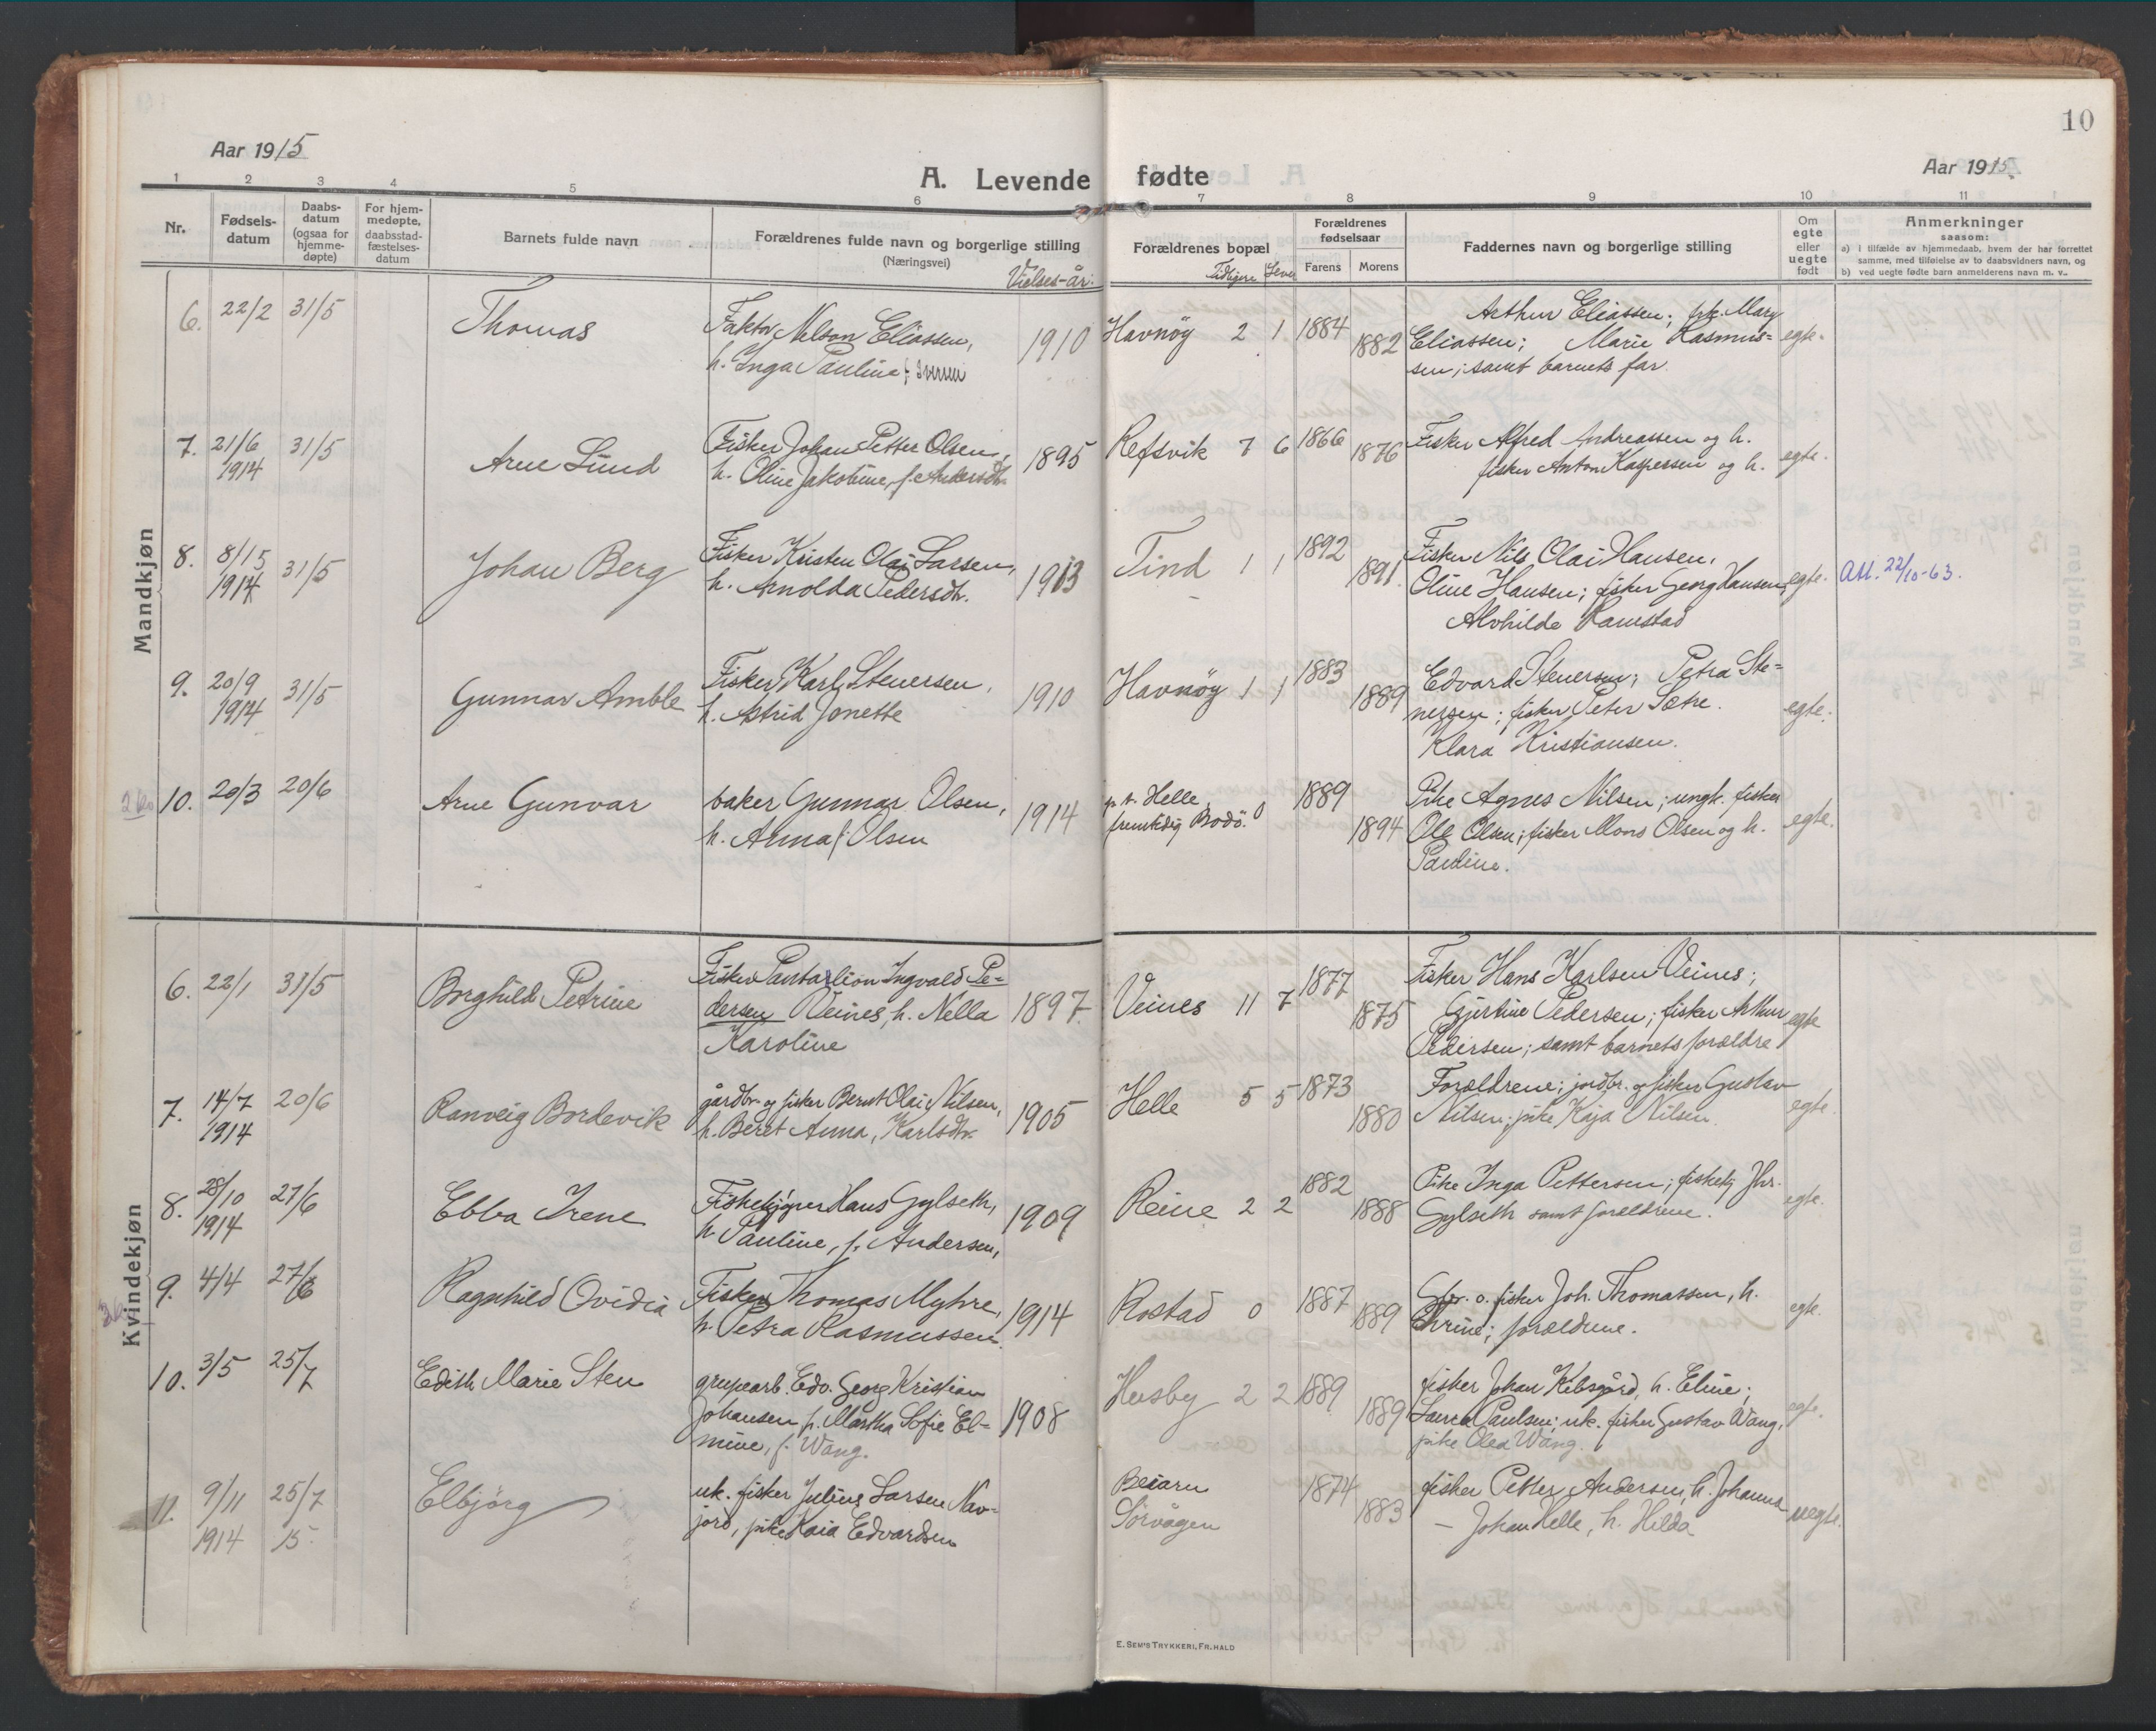 10
Aar 1915
Aar 1915.
A. Levende fødte
1 2 3 4 5 6 7 8 9 10 11
Nr.
Fødsels-
datum
Daabs-
datum
(ogsaa for
hjemme-
døpte)
For hjem-
medøpte,
daabsstad-
fæstelses-
datum
Barnets fulde navn
Forældrenes fulde navn og borgerlige stilling
(Næringsvei)
Vielses-år:
Forældrenes bopæl
Tidligere Leve
Forældrenes
fødselsaar
Farens Morens
Faddernes navn og borgerlige stilling
Om
egte
eller
uegte
født
Anmerkninger
saasom:
a) i tilfælde av hjemmedaab, hvem der har forrettet
samme, med tilføielse av to daabsvidners navn, og
b) ved uegte fødte barn anmelderens navn m. v.
Mandkjøn
6. 22/2 31/5 Thomas
Faktor Nelson Eliassen,
h. Inga Pauline f. Iversen
1910 Havnøy 2 1 1884 1882
Arthur Eliassen; pik. Mary
Eliassen; Marie Rasmus=
sen; samt barnets far.
egte.
7. 21/6 1914 31/5 Arne Lund
Fisker Johan Petter Olsen,
h. Oline Jakobine, f. Andersdtr.
1895 Refsvik 7 6 1866 1876
Fisker Alfred Andreassen og h.
fisker Anton Kaspersen og h.
egte.
8. 8/15 1914 31/5 Johan Berg
Fisker Kristen Olai Larsen,
h. Arnolda Pedersdtr.
1913 Tind 1 1 1892 1891.
Fisker Nils Olai Hansen,
Oline Hansen; fisker Georg Hansen,
Alvhilde Ramstad
egte. Att. 22/10-63.
9. 20/9 1914 31/5 Gunnar Amble
Fisker Karl Stenersen,
h. Astrid Jonette
1910 Havnøy 1 1 1883 1889
Edvard Stenersen; Petra Ste=
nersen; fisker Peter Sætre.
Klara Kristiansen.
egte.
10. 20/3 20/6 Arne Gunvar
baker Gunnar Olsen,
h. Anna f. Olsen
1914 p. t. Helle,
fremtidig Bodö. 0 1889 1894
Pike Agnes Nilsen; ungk. fisker
Ole Olsen; fisker Mons Olsen og h.
Pauline.
egte.
Kvindekjøn
6. 22/1 31/5 Borghild Petrine
Fisker Pantalion Ingvald Pe-
dersen Veines, h. Nella
Karoline
1897. Veines 11 7 1877 1875
Fisker Hans Karlsen Veines;
Gjertine Pedersen; fisker Arthur
Pedersen; samt barnets forældre
egte
7. 14/7 1914 20/6 Ranveig Bordevik
gårdbr. og fisker Bernt Olai Nilsen,
h. Beret Anna, Karlsdtr.
1905 Helle 5 5 1873 1880
Forældrene; jordbr. og fisker Gustav
Nilsen; pike Kaja Nilsen.
egte.
8. 28/10 1914 27/6 Ebba Irene
Fiskekjøper Hans Gylseth,
h. Pauline, f. Andersen,
1909 Reine 2 2 1882 1888
Pike Inga Pettersen; fiskekj. Jhr.
Gylseth samt forældrene.
egte.
9. 4/4 27/6 Ragnhild Ovidia
Fisker Thomas Myhre,
h. Petra Rasmussen.
1914 Rostad 0 1887 1889
Gbr. o. fisker Joh. Thomassen, h.
Thrine; forældrene.
egte.
10. 3/5 25/7 Edith Marie Sten
grupearb. Edv. Georg Kristian
Johansen h. Martha Sofie El=
mine, f. Wang.
1908 Husby 2 2 1889 1889
fisker Johan Kilsgård, h. Eline;
Laura Paulsen; uk. fisker Gustav Wang,
pike Olea Wang.
egte.
11. 9/11 1914 25/7 15. Elbjörg
uk. fisker Julius Larsen Nav=
jord, pike Kaia Edvardsen
Beiarn
Sörvågen
1874 1883
fisker Petter Andersen, h. Johanna
— Johan Helle, h. Hilda
uegte.
E. SEM'S TRYKKERI, FR.HALD